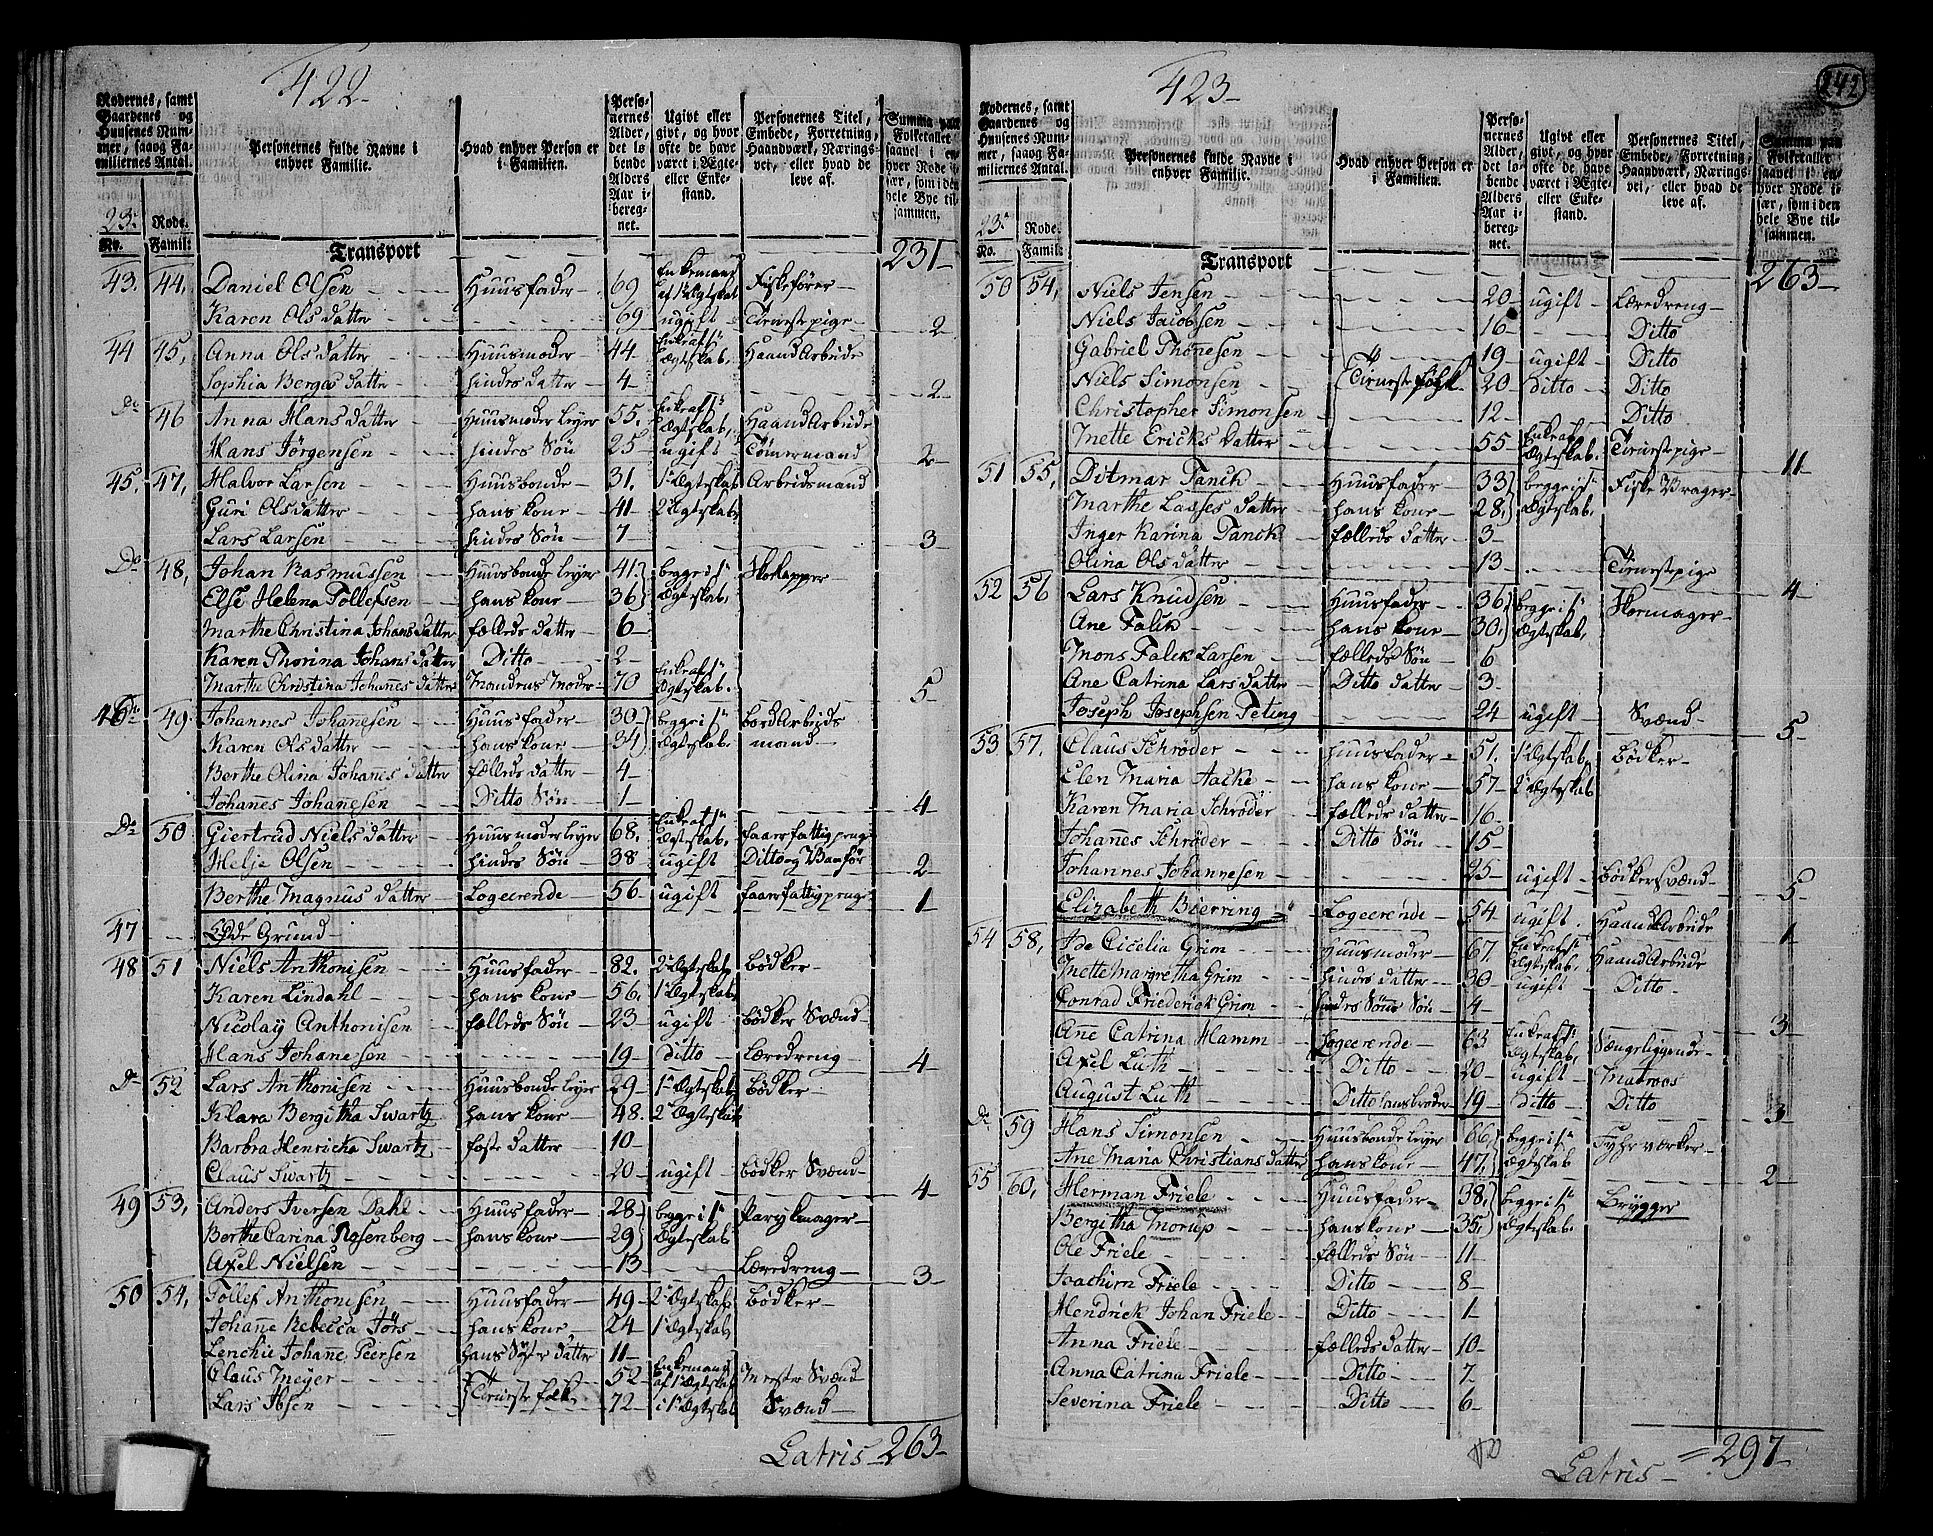 422-
Rodernes, samt Gaardenes og Huusenes Nummer, saaog Familiernes Antal.
Personernes fulde Navne i enhver Familie.
Hvad enhver Person er i Familien.
Personernes Alder, det løbende Alders Aar iberegnet.
Ugivt eller givt, og hvor ofte de have været i Ægte- eller Enkestand.
Personernes Titel, Embede, Forretning, Haandværk, Næringsvei, eller hvad de leve af.
Summa paa Folketallet saavel i enhver Rode især, som i den hele Bye tilsammen.
23 Rode.
No. Famil:
Transport 231-
43. 44, Daniel Olsen Huusfader 69 Enkemand af 1 Ægteskab Fiskefører
Karen Olsdatter 69 ugift Tienestepige 2
44 45, Anna Olsdatter Huusmoder 44 Enke af 1 Ægteskab, HaandArbeide
Sophia Bergesdatter hindes datter 4 2
Do 46 Anna Hansdatter Huusmoder leyer 55. Enke af 1 Ægteskab, HaandArbeide
Hans Jörgensen hindes Sön 25 ugift Tömermand 2
45. 47, Halvor Larsen Huusbonde 31. 1 Ægteskab Arbeidsmand
Guri Olsdatter hans kone 41 2 Ægteskab
Lars Larsen hindes Sön 7 3
Do 48, Johan Rasmussen Huusbonde leyer 41. begge i 1 Ægteskab, Skoelapper
Else Helena Tollefsen hans kone 36
Marthe Christina Johansdatter fælleds datter 6
Karen Thorina Johansdatter Ditto 2
Marthe Christina Johannesdatter Mandens Moder 70 Enke af 1 Ægteskab. 5
46 49 Johannes Johanesen Huusfader 30 begge i 1 Ægteskab. bordArbeids
Karen Olsdatter hans kone 34 mand
Berthe Olina Johannesdatter fælleds datter 4
Johannes Johanesen Ditto Sön 1 4
Do 50 Giertrud Nielsdatter Huusmoder leyer 68. Enke af 1 Ægteskab, faaer fattigpenge
Helje Olsen hindes Sön 38 ugift Ditto og Vanför 2
Berthe Magnusdatter Logeerende 56 ugift faaer fattigpenge 1
47 Øde Grund
48 51 Niels Anthonisen Huusfader 82. 2 Ægteskab bödker
Karen Lindahl hans kone 56. 1 Ægteskab
Nicolay Anthonisen fælleds Sön 23 ugift bödker Svænd
Hans Johanesen 19 ditto Læredreng 4
Do 52 Lars Anthonisen Huusbonde leyer 29 1 Ægteskab bödker
Klara Bergitha Swartz hans kone 48. 2 Ægteskab
Barbra Henricha Swartz foste datter 10
Claus Swartz 20 ugift bödker Svænd 4
49 53, Anders Iversen Dahl Huusfader 28 begge i 1 Ægteskab Parykmager
Berthe Carina Rosenberg hans kone 29
Axel Nielsen 13 Læredreng 3
50 54, Tollef Anthonisen Huusfader 49 2 Ægteskab bödker
Johanne Rebecca Jörs hans kone 24 1 Ægteskab
Lenchie Johanne Peersen hans Söster datter 11
Claus Meyer Tieneste folk 52 Enkemand af 1 Ægteskab Mester Svænd
Lars Ibsen 72 i 1 Ægteskab Svænd
Latris 263-
423-
242
Rodernes, samt Gaardenes og Huusenes Nummer, saaog Familiernes Antal.
Personernes fulde Navne i enhver Familie.
Hvad enhver Person er i Familien.
Personernes Alder, det løbende Alders Aar iberegnet.
Ugivt eller givt, og hvor ofte de have været i Ægte- eller Enkestand.
Personernes Titel, Embede, Forretning, Haandværk, Næringsvei, eller hvad de leve af.
Summa paa Folketallet saavel i enhver Rode især, som i den hele Bye tilsammen.
23 Rode.
No. Famil:
Transport 263-
50 54, Niels Jensen 20 ugift Læredreng
Niels Jacobsen 16 Ditto
Gabriel Thönesen 19 ugift Ditto
Niels Simonsen Tieneste folk 20 Ditto Ditto
Christopher Simonsen 12 Ditto
Inette Ericksdatter 55 Enke af 1 Ægteskab. Tienestepige 11
51 55, Ditmar Tanck Huusfader 33 begge i 1 Ægteskab. Fiske Vrager
Marthe Lassesdatter hans kone 28
Inger Karina Tanck fælleds datter 3
Olina Olsdatter 13 Tienestepige 4
52 56 Lars Knudsen Huusfader 36 begge i 1 Ægteskab, Skoemager
Ane Falck hans kone 30
Mons Falck Larsen fælleds Sön 6
Ane Catrina Larsdatter Ditto datter 3
Joseph Josephsen Teting 24 ugift Svænd 5
53 57. Claus Schröder Huusfader 51. 1 Ægteskab bödker
Elen Maria Aacke hans kone 57 2 Ægteskab
Karen Maria Schröder fælleds datter 16
Johannes Schröder Ditto Sön 15
Johannes Johannesen 25 ugift bödkersvænd 5
Elizabeth Bierring Logeerende 54 ugift Haandarbeide 1
54 58, Ide Cicelia Grim Huusmoder 67. Enke af 1 Ægteskab. HaandArbeide
Inette Margretha Grim hindes datter 30 ugift Ditto
Conrad Friederick Grim hindes Söns Sön 4 3
Ane Catrina Hamm Logeerende 63 Enke af 1 Ægteskab, Sængeliggende
Axel Luth Ditto 20 ugift Matroes
August Luth Ditto hans broder 19 ditto Ditto 3
Do 59 Hans Simonsen Huusbonde leyer 66, begge i 1 Ægteskab Fyhrværker
Ane Maria Christiansdatter hans kone 47 2
55 60, Herman Friele Huusfader 38, begge i 1 Ægteskab. Brygger
Bergitha Morup hans kone 35,
Ole Friele fælleds Sön 11
Joachim Friele Ditto 8
Hendrick Johan Friele Ditto 1
Anna Friele fælleds datter 10
Anna Catrina Friele Ditto 7
Severina Friele Ditto 6
Latris 297-